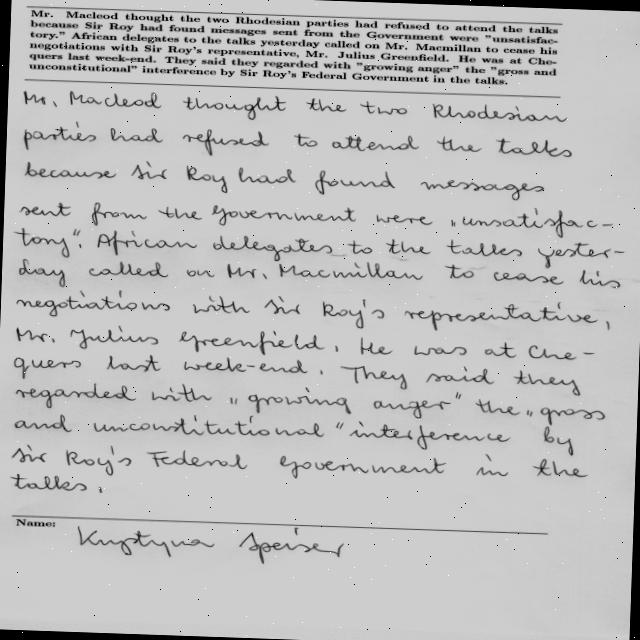 Mr. Macleod thought the two Rhodesian parties had refused to attend the talks
because Sir Roy had found messages sent from the Government were "unsatisfac-
tory." African delegates to the talks yesterday called on Mr. Macmillan to cease his
negotiations with Sir Roy's representative, Mr. Julius Greenfield. He was at Che-
quers last week-end. They said they regarded with "growing anger" the "gross and
unconstitutional" interference by Sir Roy's Federal Government in the talks.
Mr. Macleod thought the two Rhodesian
parties had refused to attend the talks
because Sir Roy had found messages
sent from the Government were „unsatisfac-
tory". African delegates to the talks yester-
day called on Mr. Macmillan to cease his
negotiations with Sir Roy's representative,
Mr. Julius Greenfield. He was at Che-
quers last week-end. They said they
regarded with „growing anger" the „gross
and unconstitutional" interference by
Sir Roy's Federal Government in the
talks.
Name:
Krystyna Speiser